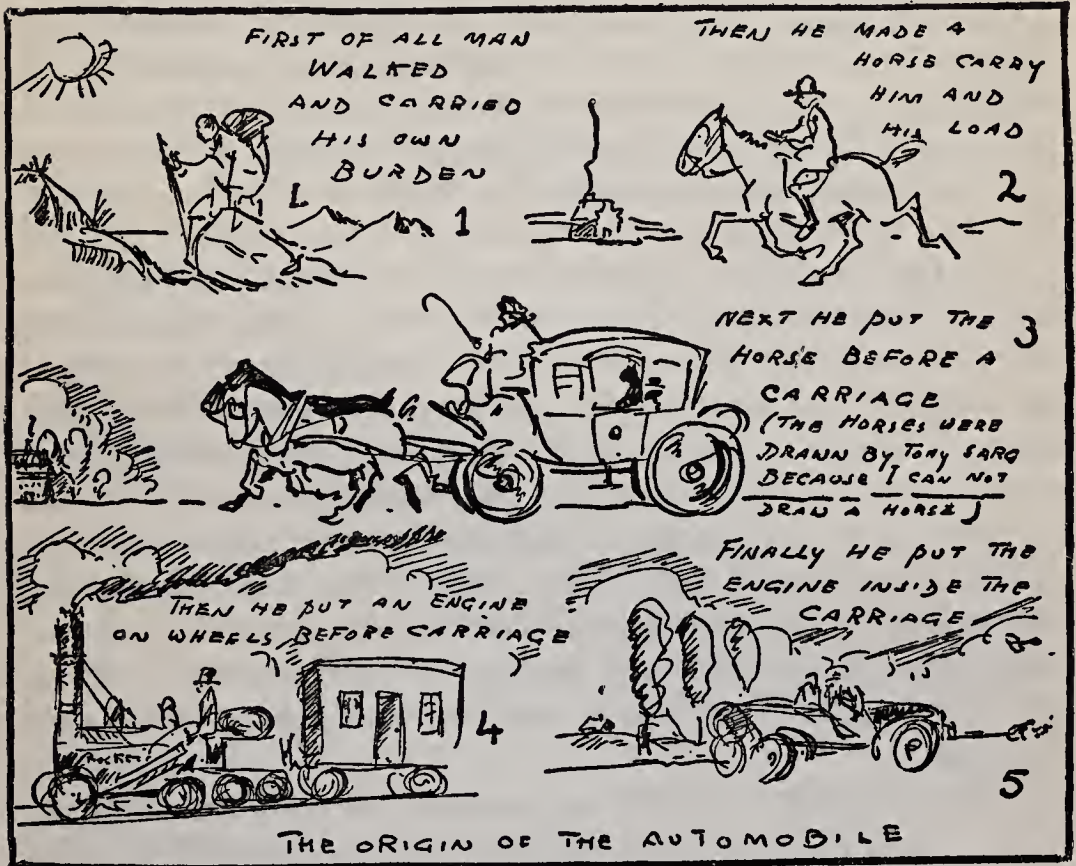 FIRST OF ALL MAN
WALKED
AND CARRIED
HIS OWN
BURDEN
1
THEN HE MADE A
HORSE CARRY
HIM AND
HIS LOAD
2
NEXT HE PUT THE
HORSE BEFORE A
CARRIAGE
(THE HORSES WERE
DRAWN BY TONY SARG
BECAUSE I CAN NOT
DRAW A HORSE)
3
THEN HE PUT AN ENGINE
ON WHEELS BEFORE CARRIAGE
ROCKET
4
FINALLY HE PUT THE
ENGINE INSIDE THE
CARRIAGE
5
THE ORIGIN OF THE AUTOMOBILE